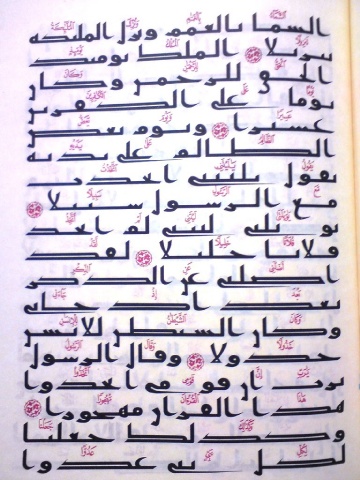 السما بالغمم ونزل الملئكه
تنزيلا الملك يومئذ
الحق للرحمن وكان
يوما على الكفرين
عسيرا ويوم يعض
الظالم على يديه
يقول يليتني اتخذت
مع الرسول سبيلا
يويلتى ليتني لم اتخذ
فلانا خليلا لقد
اضلني عن الذكر
بعد اذ جاني
وكان الشيطن للانسن
خذولا وقال الرسول
يرب ان قومي اتخذوا
هذا القران مهجورا
وكذلك جعلنا
لكل نبي عدوا